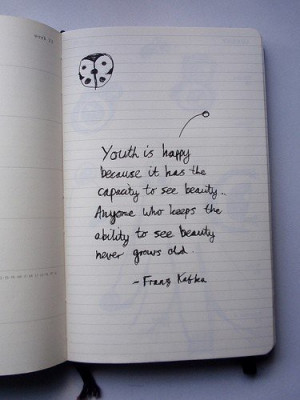 Youth is happy
because it has the
capacity to see beauty..
Anyone who keeps the
ability to see beauty
never grows old.
- Franz Kafka